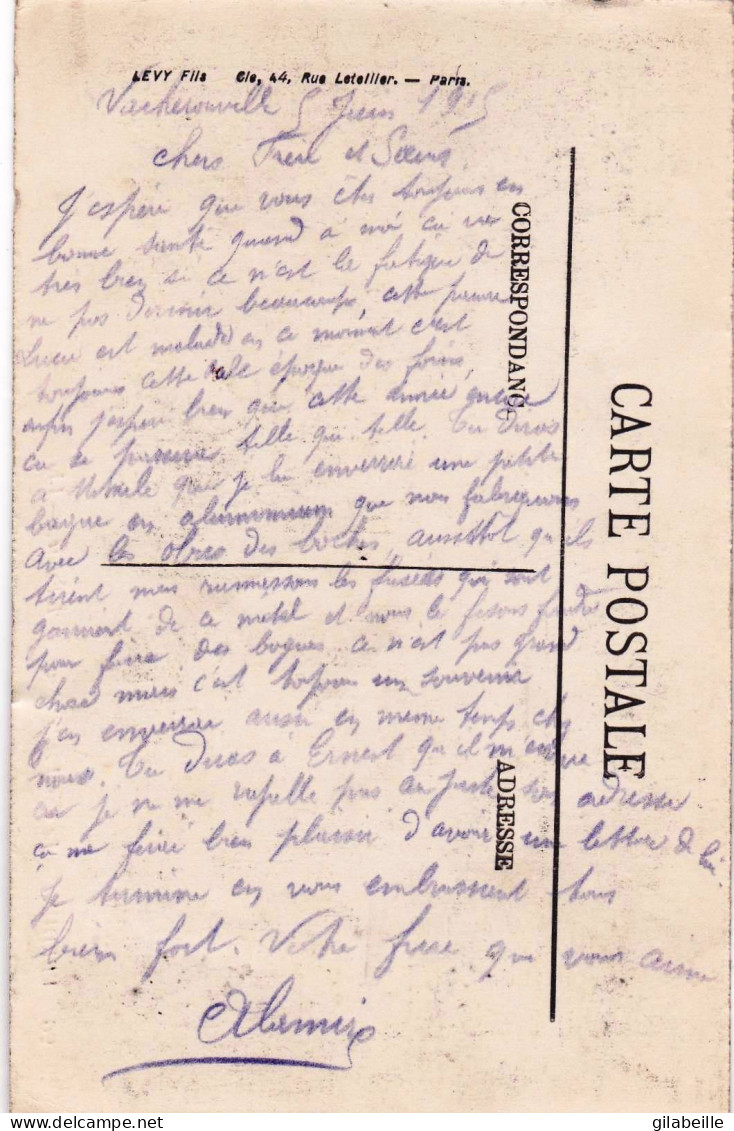 LEVY Fils Cie, 44, Rue Letellier. — Paris.
Vacherauville 5 Juin 1915
chers Frere et Soeurs
J'espère que vous êtes toujours en
bonne santé quand à moi ca va
très bien si ce n'est la fatigue de
ne pas dormir beaucoup, cette pauvre
est malade en ce moment c'est
toujours cette sale époque des foins,
enfin j'espère bien que cette année
ca se passeras telle que telle. Tu diras
a que je lui enverrai une petite
bague en aluminium que nous fabriquons
avec les obus des boches, aussitot qu'ils
tirent nous ramassons les fusées qui sont
de ce metal et nous le fesons fondre
pour faire des bagues ce n'est pas grand
chose mais c'est toujours un souvenir
j'en enverrai aussi en meme temps chez
nous. Tu diras à Ernest qu'il m'
car je ne me rapelle pas au juste son adresse
ça me ferai bien plaisir d'avoir une lettre de lui.
Je termine en vous embrassent tous
bien fort. Votre frere qui vous aime
CORRESPONDANCE
ADRESSE
CARTE POSTALE
gilabeille